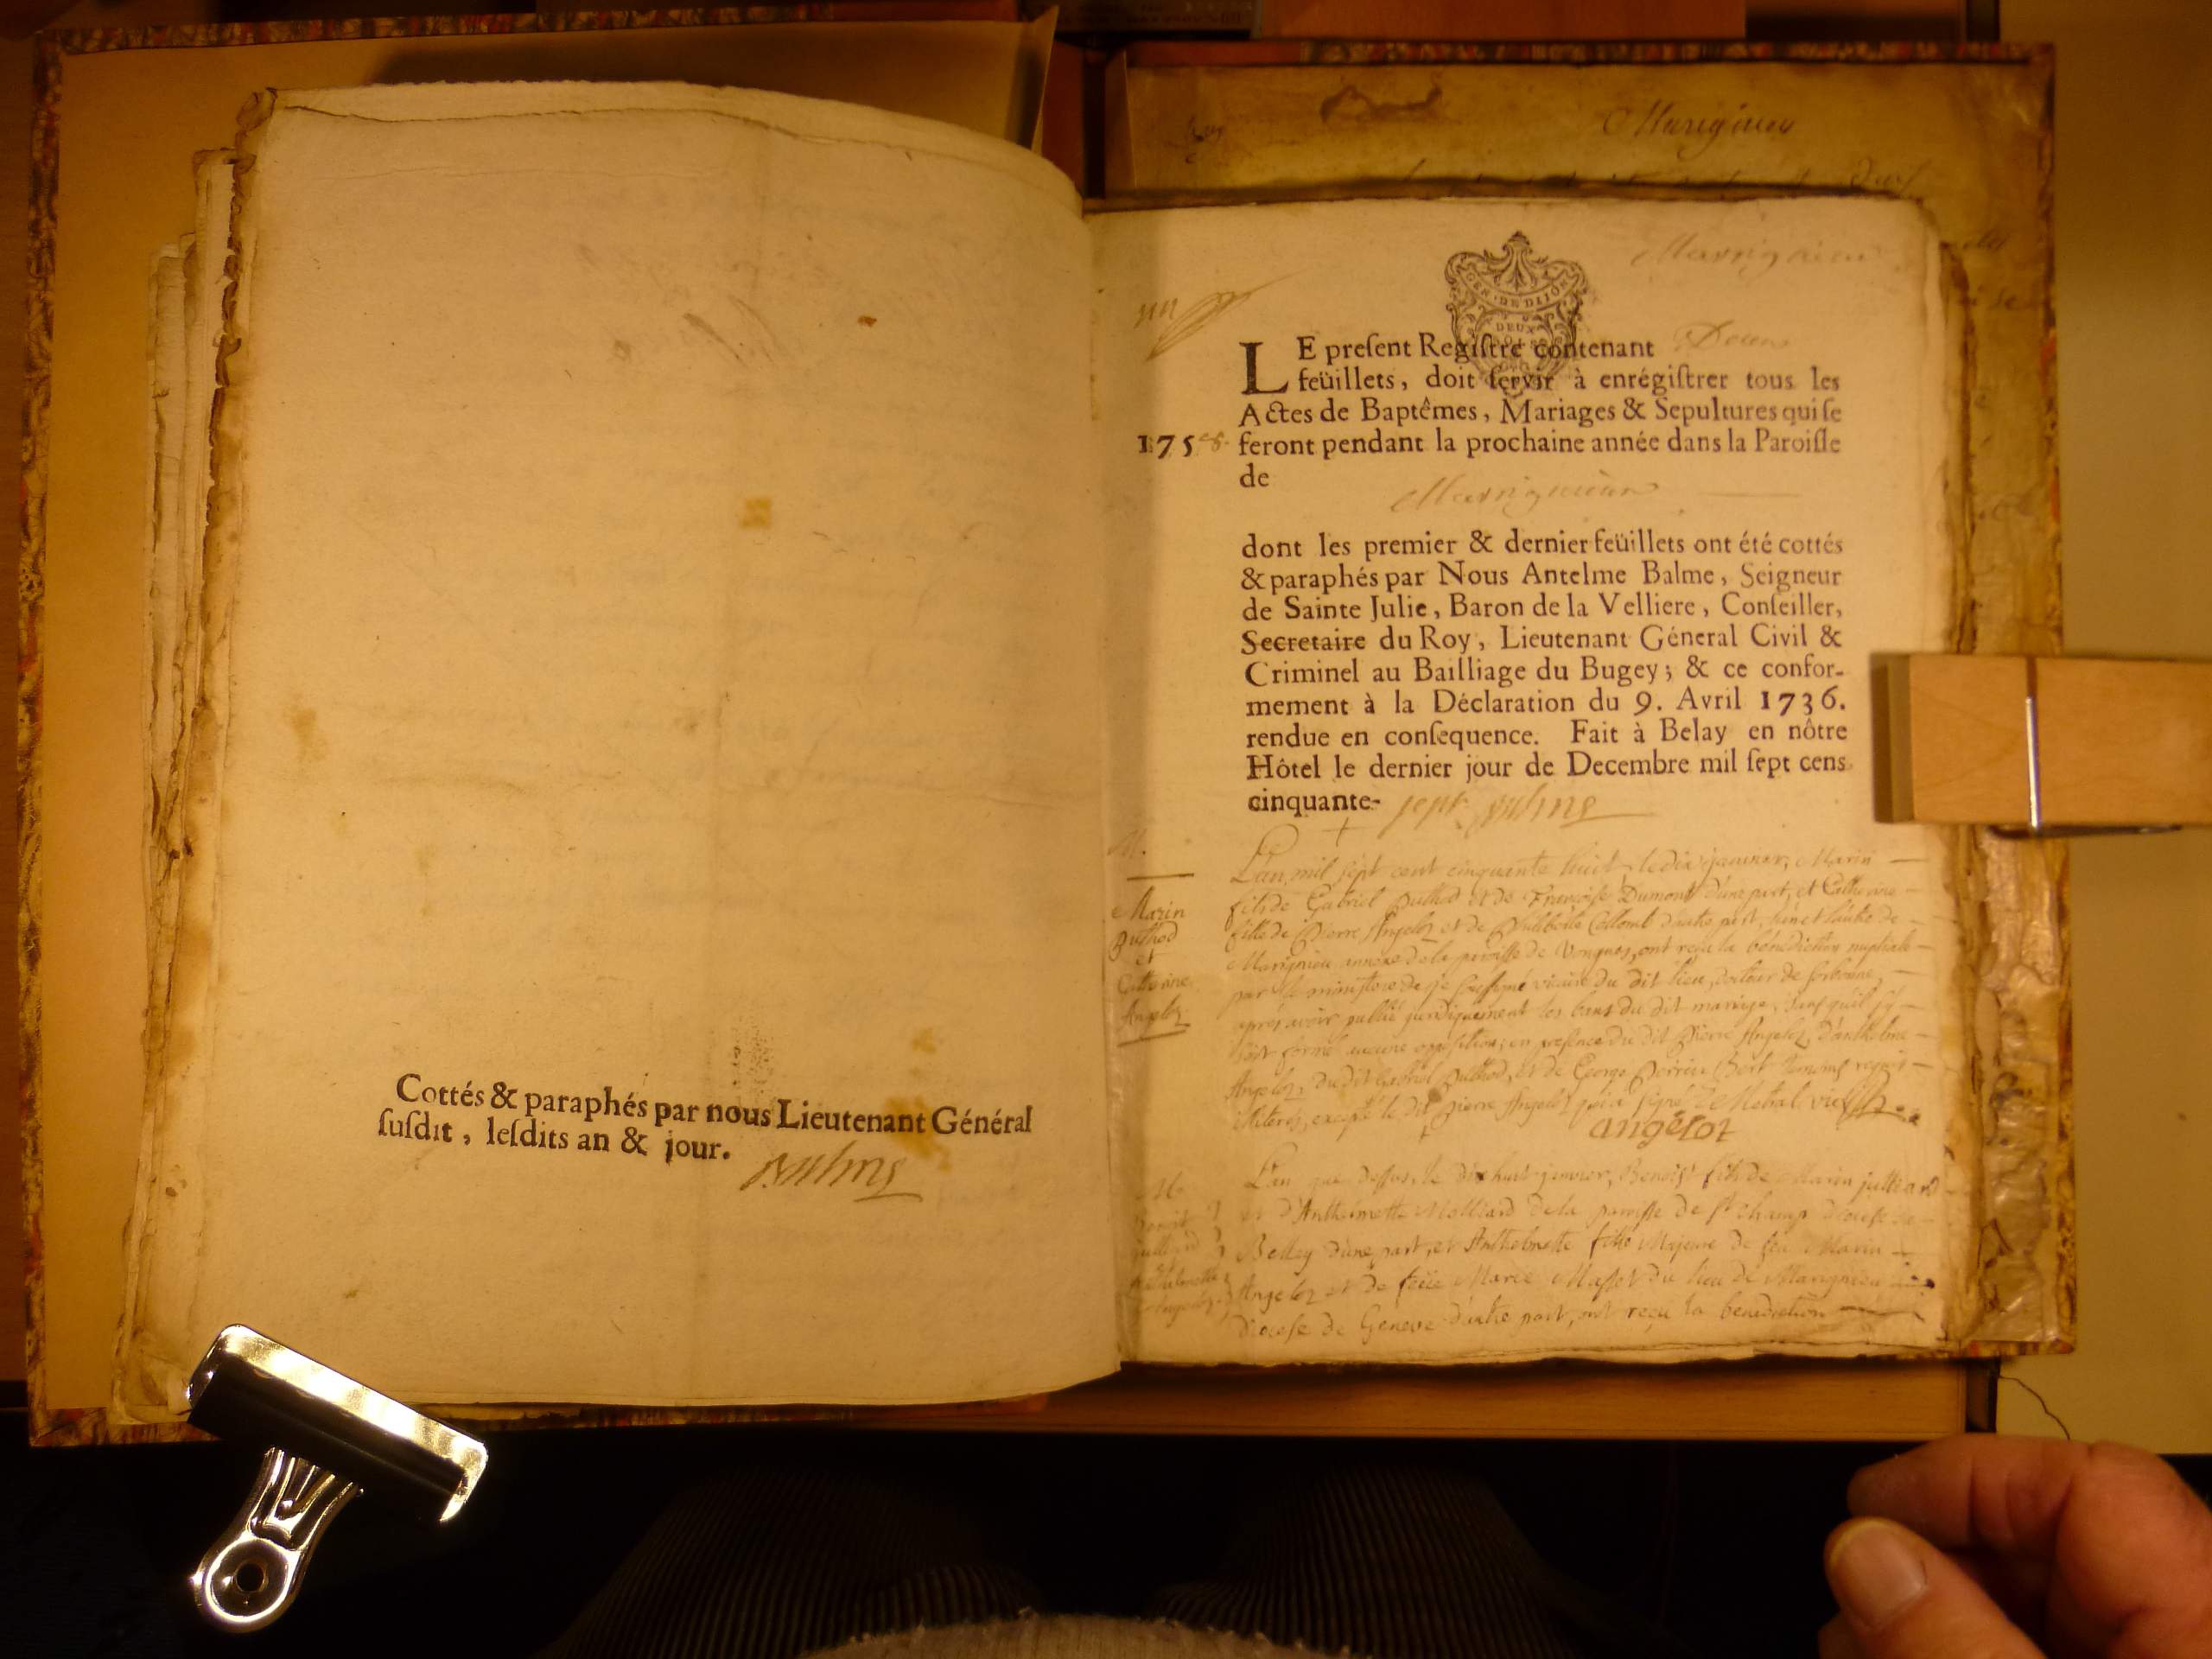 Cottés & paraphés par nous Lieutenant Général
ſuſdit, leſdits an & jour.
Marignieu
Marignieu
GEN. DE DIJON
DEUX
un
LE preſent Regiſtre contenant Douze
feüillets, doit ſervir à enrégiſtrer tous les
Actes de Baptêmes, Mariages & Sepultures qui ſe
1758. feront pendant la prochaine année dans la Paroiſſe
de
Marignieu
dont les premier & dernier feüillets ont été cottés
& paraphés par Nous Antelme Balme, Seigneur
de Sainte Julie, Baron de la Velliere, Conſeiller,
Secretaire du Roy, Lieutenant Géneral Civil &
Criminel au Bailliage du Bugey; & ce confor-
mement à la Déclaration du 9. Avril 1736.
rendue en conſequence. Fait à Belay en nôtre
Hôtel le dernier jour de Decembre mil ſept cens
cinquante- sept
M.
Marin
Buthod
et
Catherine
Angeloz
L'an mil sept cent cinquante huit, le dix janvier, Marin
fils de Gabriel Buthod et de Françoise Dumont d'une part, et Catherine
fille de Pierre Angeloz et de Philiberte Collomb d'autre part, l'un et l'autre de
Marignieu annexe de la paroisse de Vongnes, ont reçu la bénédiction nuptiale
par le ministere de je soussigné vicaire du dit lieu, docteur de sorbonne,
après avoir publié juridiquement les bans du dit mariage, sans qu'il s'y
soit formé aucune opposition; en presence du dit Pierre Angeloz, d'anthelme
Angeloz, du dit Gabriel Buthod, et de George Perrin temoins requis
illiterés, excepté le dit Pierre Angeloz qui a signé. De Metral vic.
angelot
M.
Benoit
julliard
Anthelmette
Angeloz
L'an que dessus, le dix huit janvier, Benoist fils de Marin julliard
et d'Anthelmette Molliard de la paroisse de st champ Diocese de
Belley d'une part, et Anthelmette fille Majeure de feu Marin
Angeloz et de feüe Marie Masset du lieu de Marignieu
Diocese de Geneve d'autre part, ont reçu la benediction